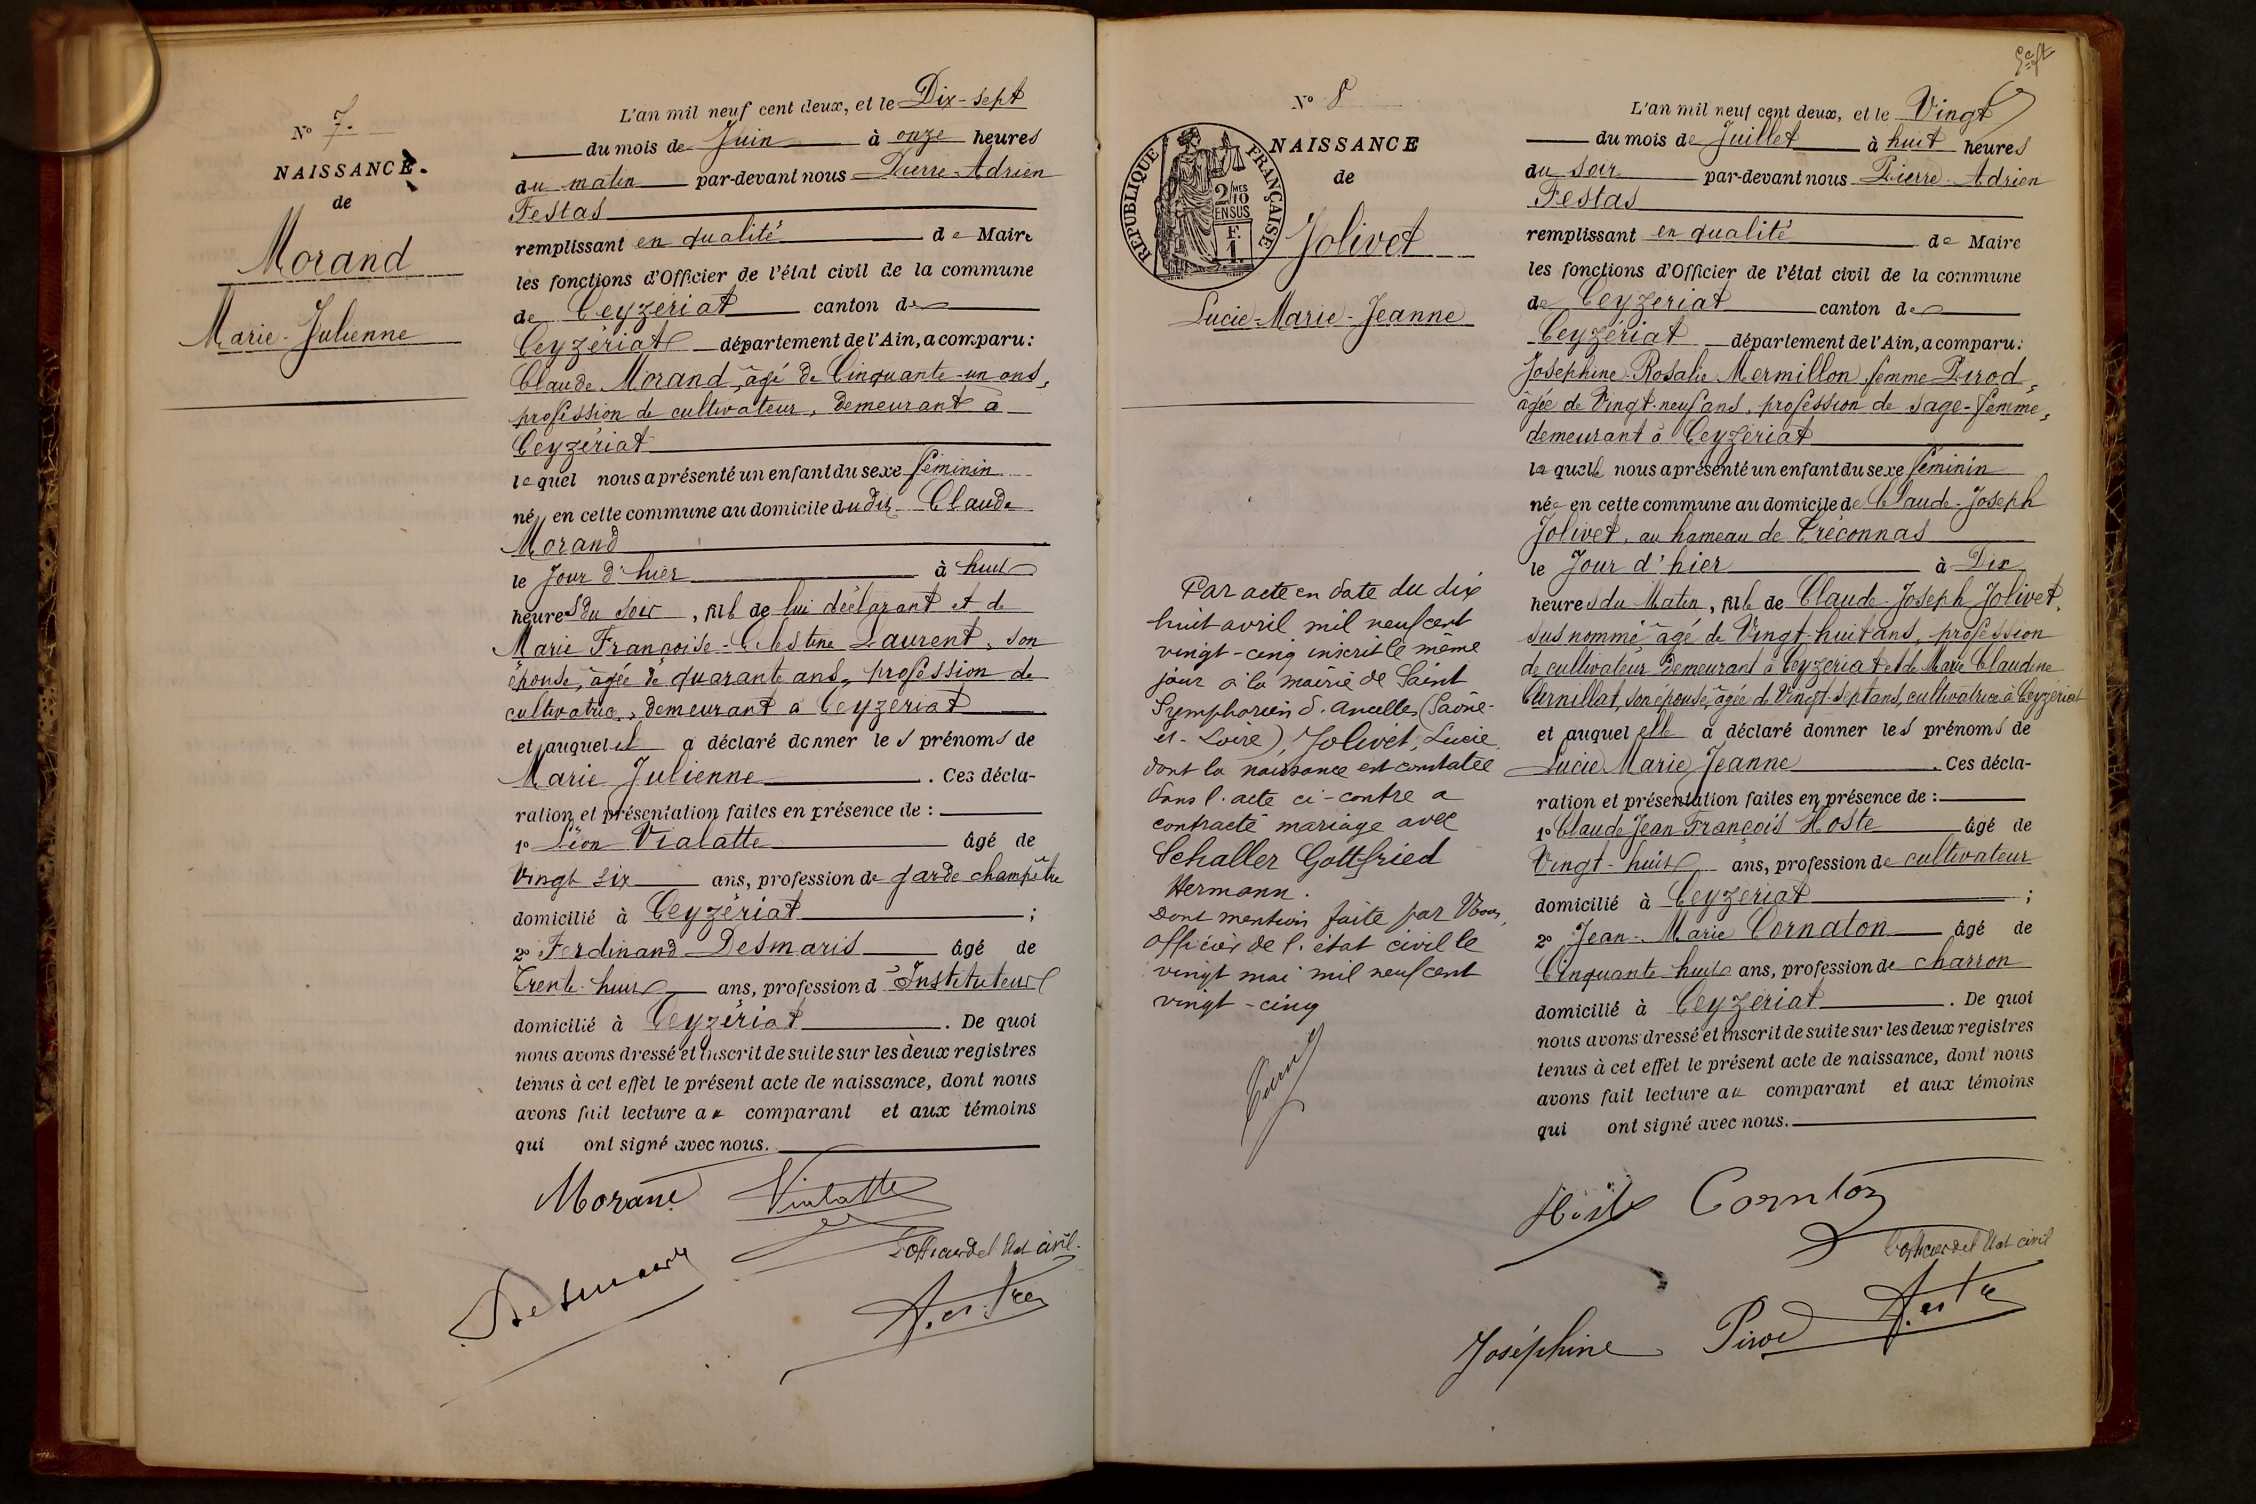 N° 7.
NAISSANCE
de
Morand
Marie-Julienne
L'an mil neuf cent deux, et le Dix-sept
du mois de Juin à onze heures
du matin par-devant nous Pierre-Adrien
Festas
remplissant en qualité de Maire
les fonctions d'Officier de l'état civil de la commune
de Ceyzériat canton de
Ceyzériat département de l'Ain, a comparu :
Claude Morand, âgé de Cinquante-un ans,
profession de cultivateur, demeurant à
Ceyzériat
lequel nous a présenté un enfant du sexe féminin
né en cette commune au domicile dudit Claude
Morand
le Jour d'hier à huit
heures du soir, fille de lui déclarant et de
Marie Françoise-Célestine Laurent, son
épouse, âgée de quarante ans, profession de
cultivatrice, demeurant à Ceyzériat
et auquel il a déclaré donner les prénoms de
Marie Julienne. Ces décla-
ration et présentation faites en présence de :
1° Léon Vialatte âgé de
Vingt six ans, profession de garde champêtre
domicilié à Ceyzériat ;
2° Ferdinand Desmaris âgé de
Trente-huit ans, profession d'Instituteur
domicilié à Ceyzériat. De quoi
nous avons dressé et inscrit de suite sur les deux registres
tenus à cet effet le présent acte de naissance, dont nous
avons fait lecture au comparant et aux témoins
qui ont signé avec nous.
Morand Vialatte
L'officier de l'Etat civil.
Desmaris
Festas
N° 8
NAISSANCE
de
RÉPUBLIQUE FRANÇAISE
2/10
EN SUS
F.
1.
Jolivet
Lucie-Marie-Jeanne
Par acte en date du dix
huit avril mil neuf cent
vingt-cinq inscrit le même
jour à la mairie de Saint
Symphorien d'Ancelles (Saône-
et-Loire), Jolivet, Lucie
dont la naissance est constatée
dans l'acte ci-contre a
contracté mariage avec
Schaller Gottfried
Hermann.
Dont mention faite par Nous,
officier de l'état civil le
vingt mai mil neuf cent
vingt-cinq
L'an mil neuf cent deux, et le Vingt
du mois de Juillet à huit heures
du soir par-devant nous Pierre-Adrien
Festas
remplissant en qualité de Maire
les fonctions d'Officier de l'état civil de la commune
de Ceyzériat canton de
Ceyzériat département de l'Ain, a comparu :
Joséphine-Rosalie Mermillon femme Pirod,
âgée de Vingt-neuf ans, profession de sage-femme,
demeurant à Ceyzériat
laquelle nous a présenté un enfant du sexe féminin
née en cette commune au domicile de Claude-Joseph
Jolivet, au hameau de Tréconnas
le Jour d'hier à Dix
heures du Matin, fille de Claude-Joseph Jolivet,
sus nommé âgé de Vingt-huit ans, profession
de cultivateur demeurant à Ceyzériat et de Marie Claudine
son épouse, âgée de Vingt-sept ans, cultivatrice à Ceyzériat
et auquel elle a déclaré donner les prénoms de
Lucie Marie Jeanne. Ces décla-
ration et présentation faites en présence de :
1° Claude Jean François Hoste âgé de
Vingt-huit ans, profession de cultivateur
domicilié à Ceyzériat ;
2° Jean-Marie Cornaton âgé de
Cinquante huit ans, profession de charron
domicilié à Ceyzériat. De quoi
nous avons dressé et inscrit de suite sur les deux registres
tenus à cet effet le présent acte de naissance, dont nous
avons fait lecture au comparant et aux témoins
qui ont signé avec nous.
Hoste Cornton
L'officier de l'Etat civil
Joséphine Pirod Festas